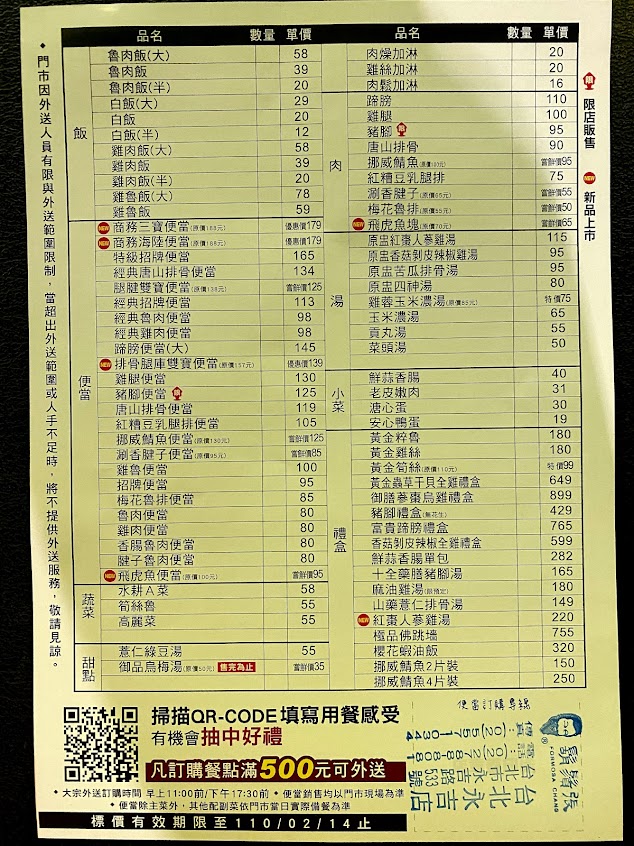 品名 數量 單價
飯
魯肉飯(大) 58
魯肉飯 39
魯肉飯(半) 20
白飯(大) 29
白飯 20
白飯(半) 12
雞肉飯(大) 58
雞肉飯 39
雞肉飯(半) 20
雞魯飯(大) 78
雞魯飯 59
便當
NEW 商務三寶便當(原價188元) 優惠價179
NEW 商務海陸便當(原價188元) 優惠價179
特級招牌便當 165
經典唐山排骨便當 134
腿腱雙寶便當(原價138元) 嘗鮮價125
經典招牌便當 113
經典魯肉便當 98
經典雞肉便當 98
蹄膀便當(大) 145
NEW 排骨腿庫雙寶便當(原價157元) 優惠價139
雞腿便當 130
豬腳便當 限 125
唐山排骨便當 119
紅糟豆乳腿排便當 105
挪威鯖魚便當(原價130元) 嘗鮮價125
涮香腱子便當(原價95元) 嘗鮮價85
雞魯便當 100
招牌便當 95
梅花魯排便當 85
魯肉便當 80
雞肉便當 80
香腸魯肉便當 80
腱子魯肉便當 80
NEW 飛虎魚便當(原價100元) 嘗鮮價95
蔬菜
水耕A菜 58
筍絲魯 55
高麗菜 55
甜點
薏仁綠豆湯 55
御品烏梅湯(原價50元) 售完為止 嘗鮮價35
品名 數量 單價
肉
肉燥加淋 20
雞絲加淋 20
肉鬆加淋 16
蹄膀 110
雞腿 100
豬腳 限 95
唐山排骨 90
挪威鯖魚(原價100元) 嘗鮮價95
紅糟豆乳腿排 75
涮香腱子(原價65元) 嘗鮮價55
梅花魯排(原價55元) 嘗鮮價50
NEW 飛虎魚塊(原價70元) 嘗鮮價65
湯
原盅紅棗人蔘雞湯 115
原盅香菇剝皮辣椒雞湯 95
原盅苦瓜排骨湯 95
原盅四神湯 80
雞蓉玉米濃湯(原價85元) 特價75
玉米濃湯 65
貢丸湯 55
菜頭湯 50
小菜
鮮蒜香腸 40
老皮嫩肉 31
溏心蛋 30
安心鴨蛋 19
禮盒
黃金粹魯 180
黃金雞絲 180
黃金筍絲(原價110元) 特價99
黃金蟲草干貝全雞禮盒 649
御膳蔘棗烏雞禮盒 899
豬腳禮盒(無花生) 429
富貴蹄膀禮盒 765
香菇剝皮辣椒全雞禮盒 599
鮮蒜香腸單包 282
十全藥膳豬腳湯 165
麻油雞湯(限預定) 180
山藥薏仁排骨湯 149
NEW 紅棗人蔘雞湯 220
極品佛跳墻 755
櫻花蝦油飯 320
挪威鯖魚2片裝 150
挪威鯖魚4片裝 250
限 限店販售
NEW 新品上市
◆門市因外送人員有限與外送範圍限制，當超出外送範圍或人手不足時，將不提供外送服務，敬請見諒。
掃描QR-CODE填寫用餐感受
有機會抽中好禮
凡訂購餐點滿500元可外送
◆大宗外送訂購時間 早上11:00前/下午17:30前 ◆便當銷售均以門市現場為準
◆便當除主菜外，其他配副菜依門市當日實際備餐為準
標價有效期限至110/02/14止
便當訂購專線
鬍鬚張
FORMOSA CHANG
台北永吉店
台北市永吉路533號